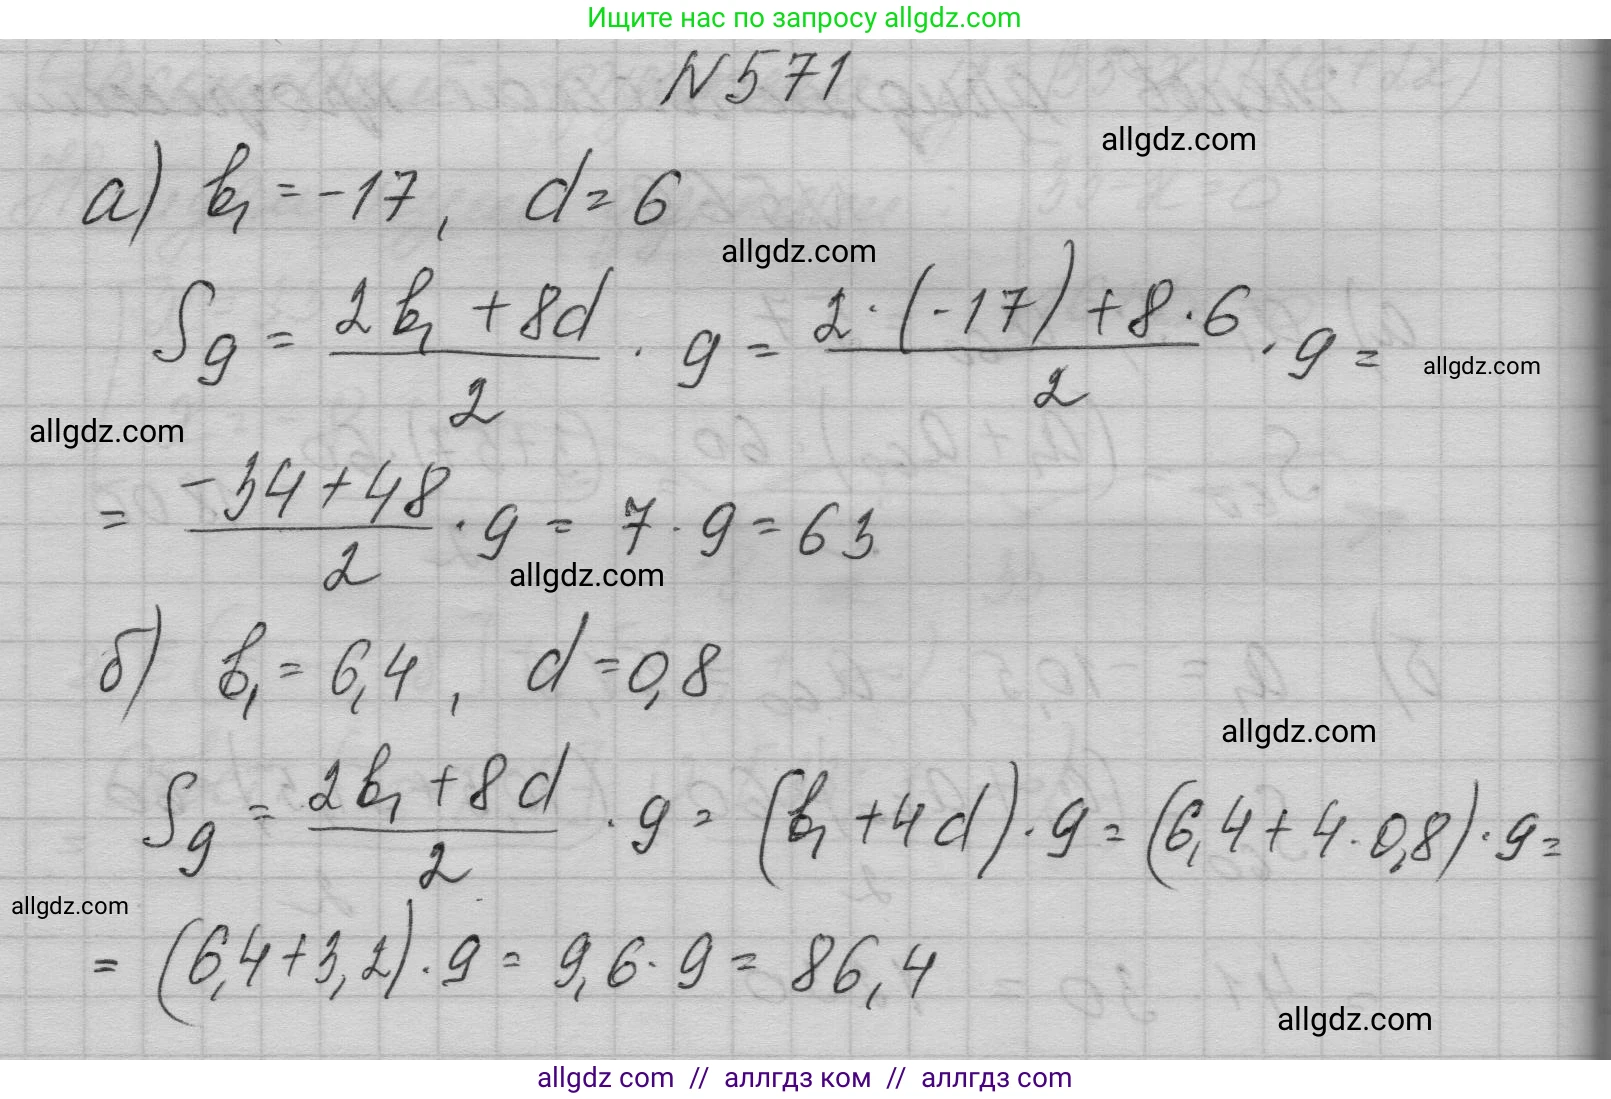 Ищите нас по запросу allgdz.com
N571
allgdz.com
а) b₁ = -17, d = 6
allgdz.com
S₉ = (2b₁ + 8d)/2 · 9 = (2 · (-17) + 8 · 6)/2 · 9 =
allgdz.com
allgdz.com
= (-34 + 48)/2 · 9 = 7 · 9 = 63
allgdz.com
б) b₁ = 6,4, d = 0,8
allgdz.com
S₉ = (2b₁ + 8d)/2 · 9 = (b₁ + 4d) · 9 = (6,4 + 4 · 0,8) · 9 =
allgdz.com
= (6,4 + 3,2) · 9 = 9,6 · 9 = 86,4
allgdz.com
allgdz com // аллгдз ком // аллгдз com